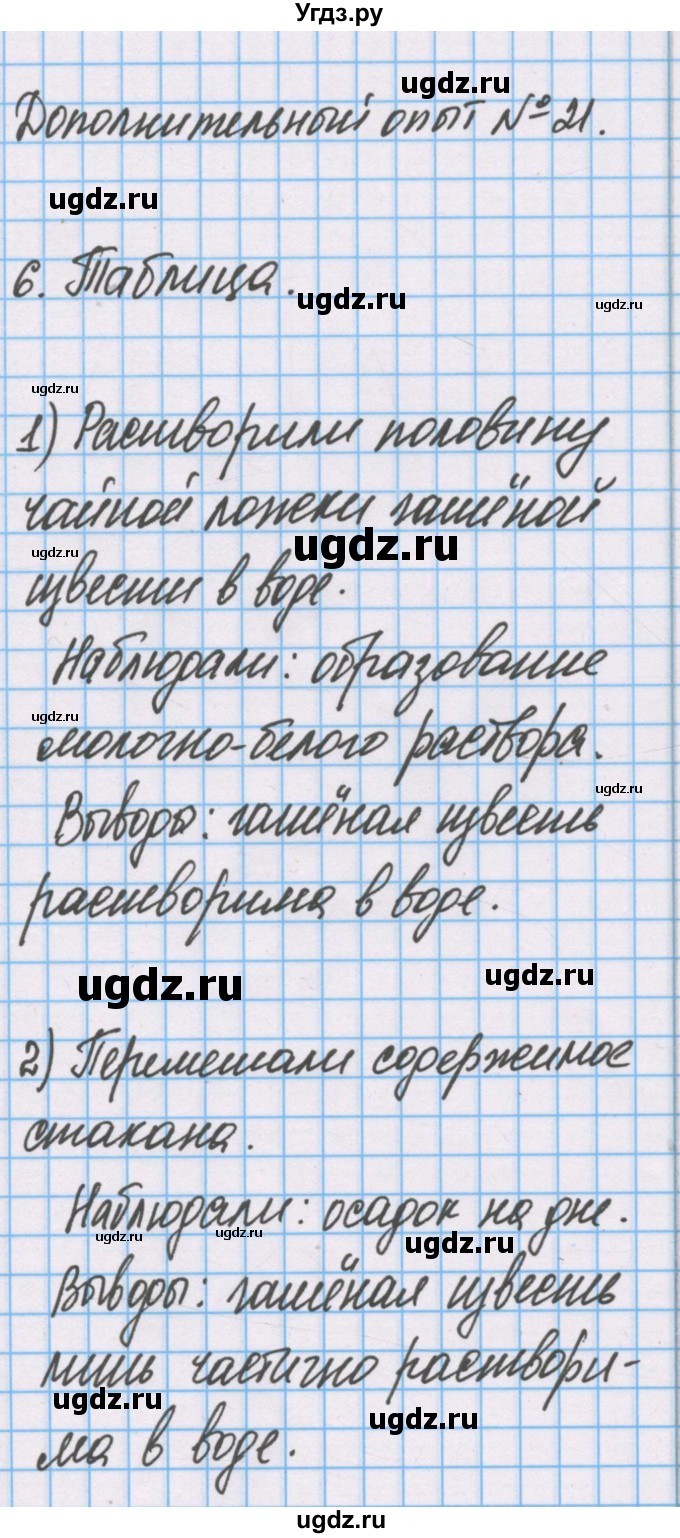 Угдз.ру
ugdz.ru
Дополнительный опыт №21.
ugdz.ru
6. Таблица.
ugdz.ru
ugdz.ru
ugdz.ru
1) Растворили половину
чайной ложки гашёной
ugdz.ru
ugdz.ru
извести в воде.
Наблюдали: образование
ugdz.ru
молочно-белого раствора.
ugdz.ru
Выводы: гашёная известь
растворима в воде.
ugdz.ru
ugdz.ru
2) Перемешали содержимое
стакана.
Наблюдали: осадок на дне.
ugdz.ru
ugdz.ru
ugdz.ru
Выводы: гашёная известь
лишь частично раствори-
ugdz.ru
ugdz.ru
ма в воде.
ugdz.ru